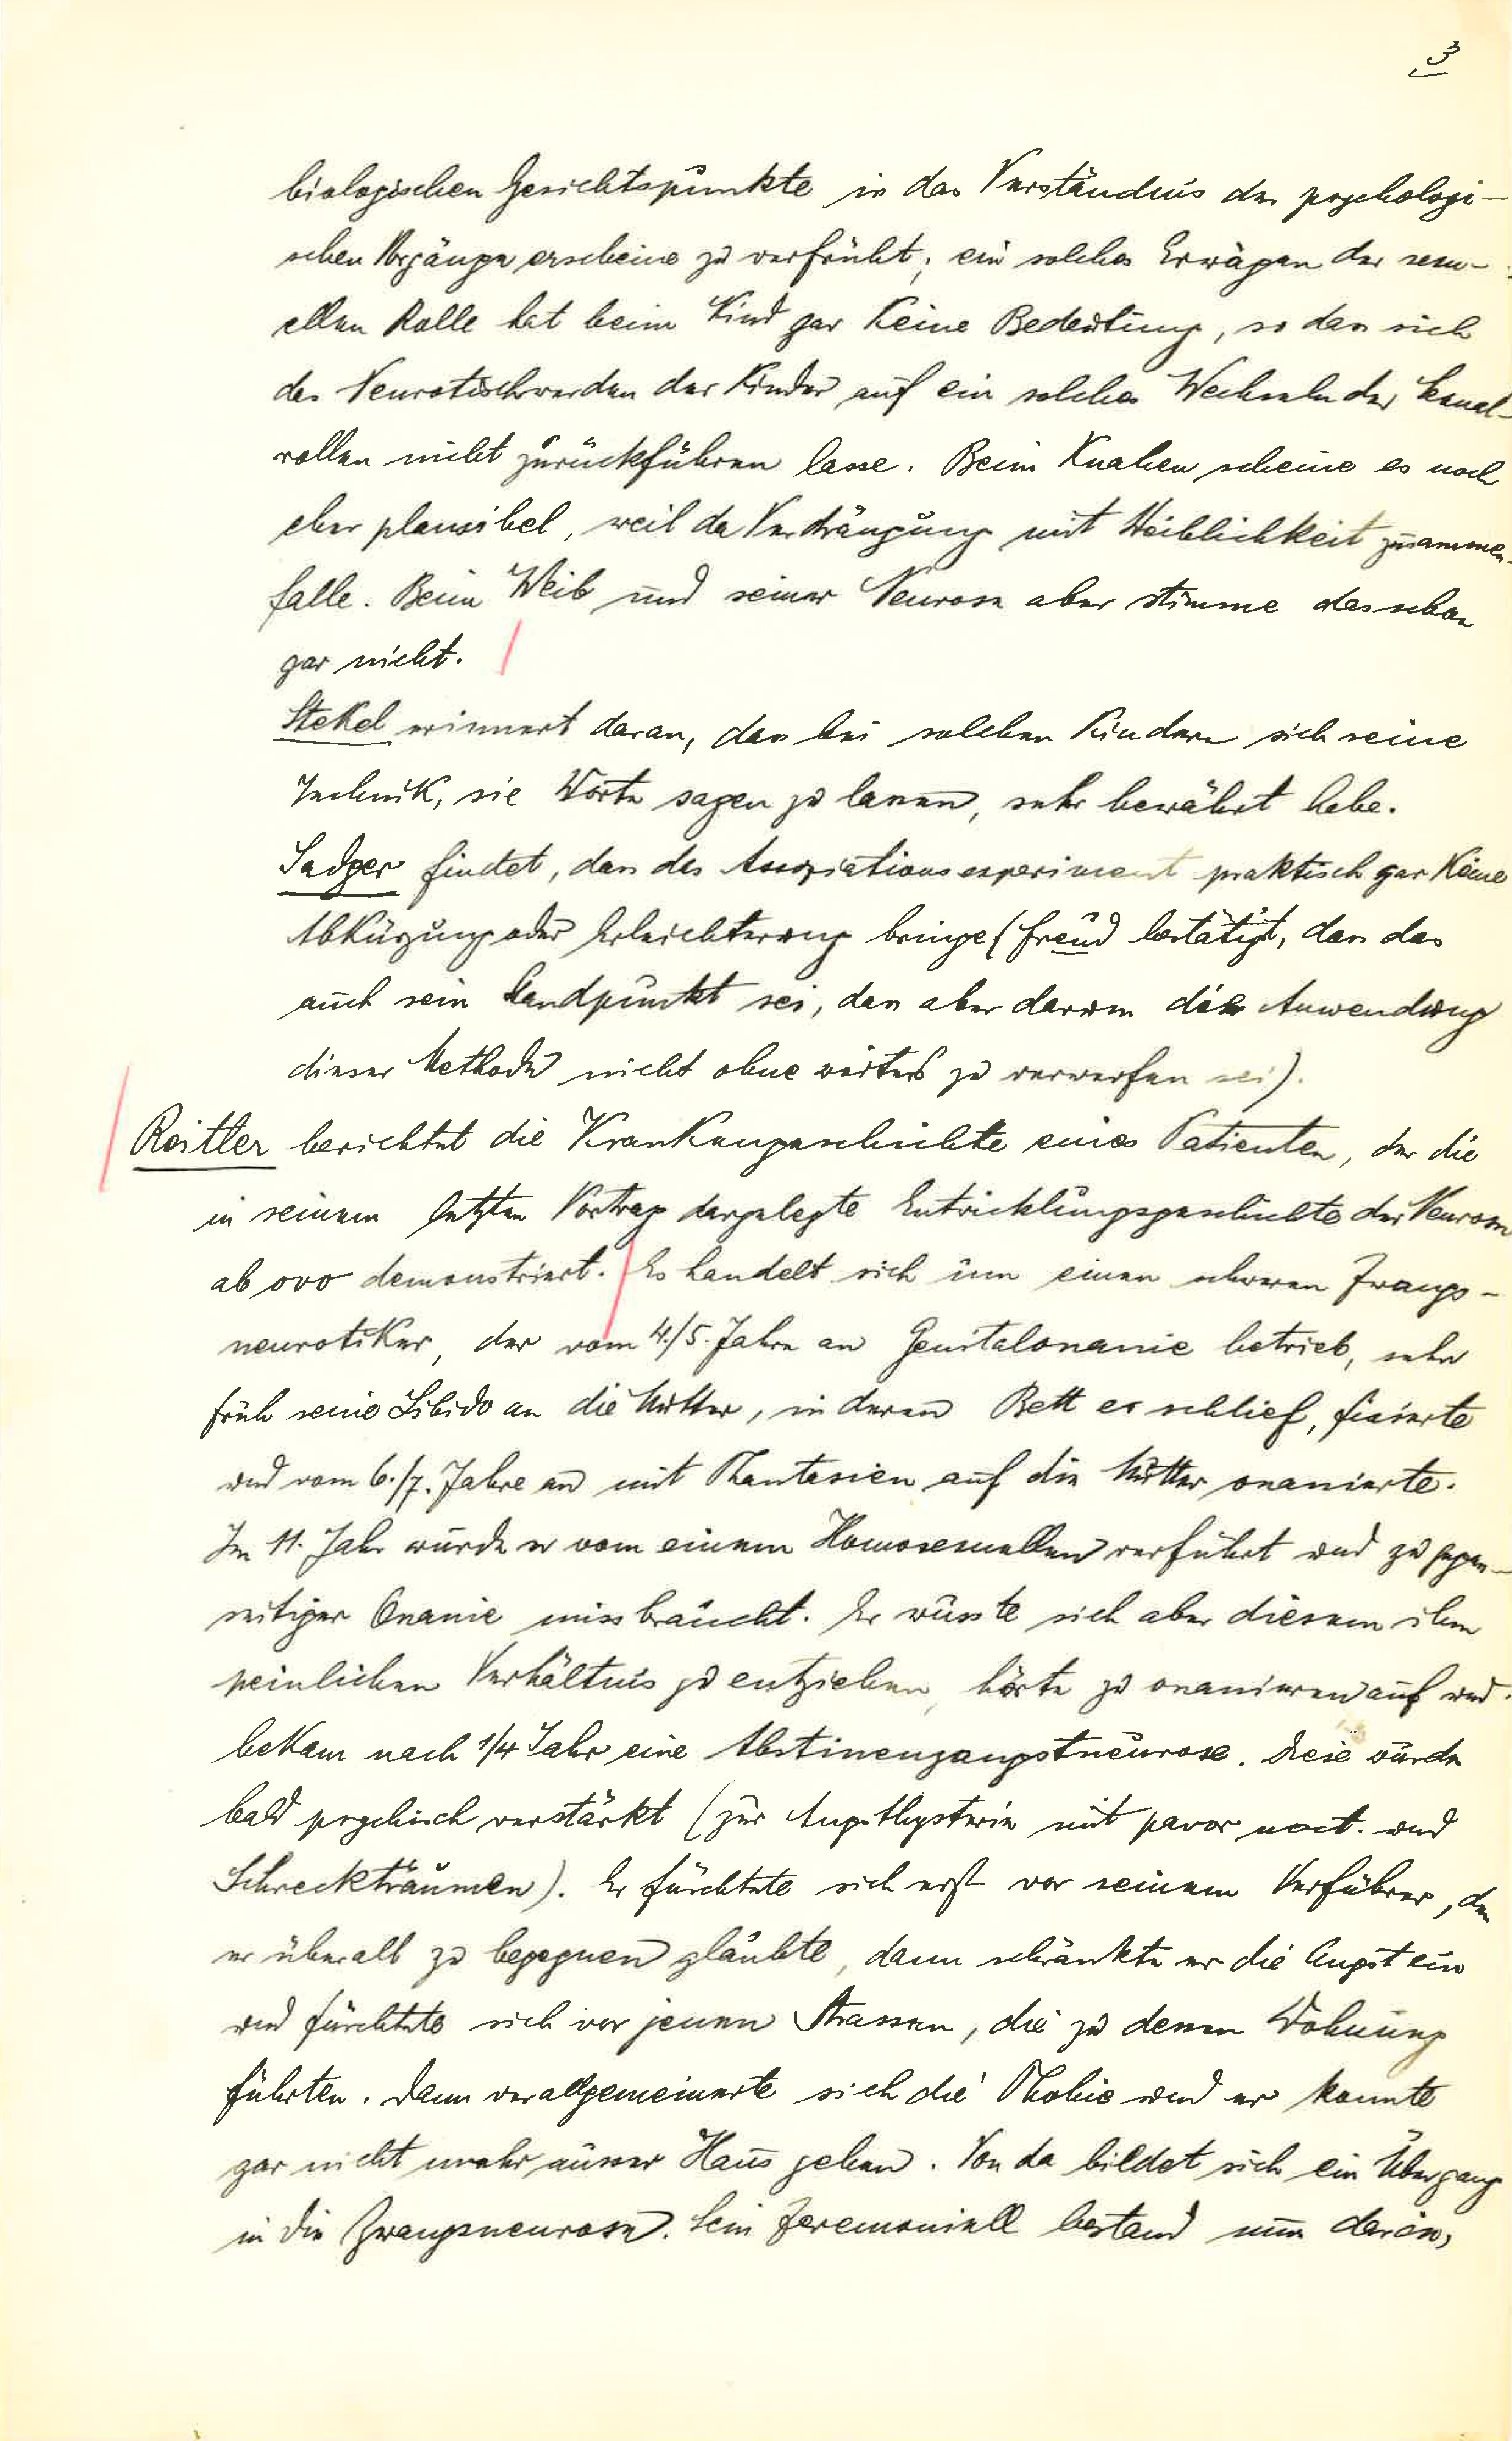 3
biologischen Gesichtspunkte in das Verständnis der psychologi-
schen Vorgänge erscheine zu verfrüht; ein solches Erwägen der sexu-
ellen Rolle hat beim Kind gar keine Bedeutung, so dass sich
das Neurotischwerden der Kinder auf ein solches Wechseln der Sexual-
rollen nicht zurückführen lasse. Beim Knaben scheine es noch
eher plausibel, weil da Verdrängung mit Weiblichkeit zusammen-
falle. Beim Weib und seiner Neurose aber stimme das schon
gar nicht.
Stekel erinnert daran, dass bei solchen Kindern sich seine
Technik, sie Worte sagen zu lassen, sehr bewährt habe.
Sadger findet, dass das Assoziationsexperiment praktisch gar keine
Abkürzung oder Erleichterung bringe (Freud bestätigt, dass das
auch sein Standpunkt sei, dass aber darum die Anwendung
dieser Methode nicht ohne weiters zu verwerfen sei).
Reitler berichtet die Krankengeschichte eines Patienten, der die
in seinem letzten Vortrag dargelegte Entwicklungsgeschichte der Neurosen
ab ovo demonstriert. Es handelt sich um einen schweren Zwangs-
neurotiker, der vom 4./5. Jahre an Genitalonanie betrieb, sehr
früh seine Libido an die Mutter, in deren Bett er schlief, fixierte
und vom 6./7. Jahre an mit Phantasien auf die Mutter onanierte.
Im 11. Jahr wurde er vom einem Homosexuellen verführt und zu gegen-
seitiger Onanie missbraucht. Er wusste sich aber diesem ihm
peinlichen Verhältnis zu entziehen, hörte zu onanieren auf und
bekam nach 1/4 Jahr eine Abstinenzangstneurose. Diese wurde
bald psychisch verstärkt (zur Angsthysterie mit pavor noct. und
Schreckträumen). Er fürchtete sich erst vor seinem Verführer, dem
er überall zu begegnen glaubte, dann schränkte er die Angst ein
und fürchtete sich vor jenen Strassen, die zu dessen Wohnung
führten. Dann verallgemeinerte sich die Phobie und er konnte
gar nicht mehr ausser Haus gehen. Von da bildet sich ein Übergang
in die Zwangsneurose. Sein Zeremoniell bestand nun darin,